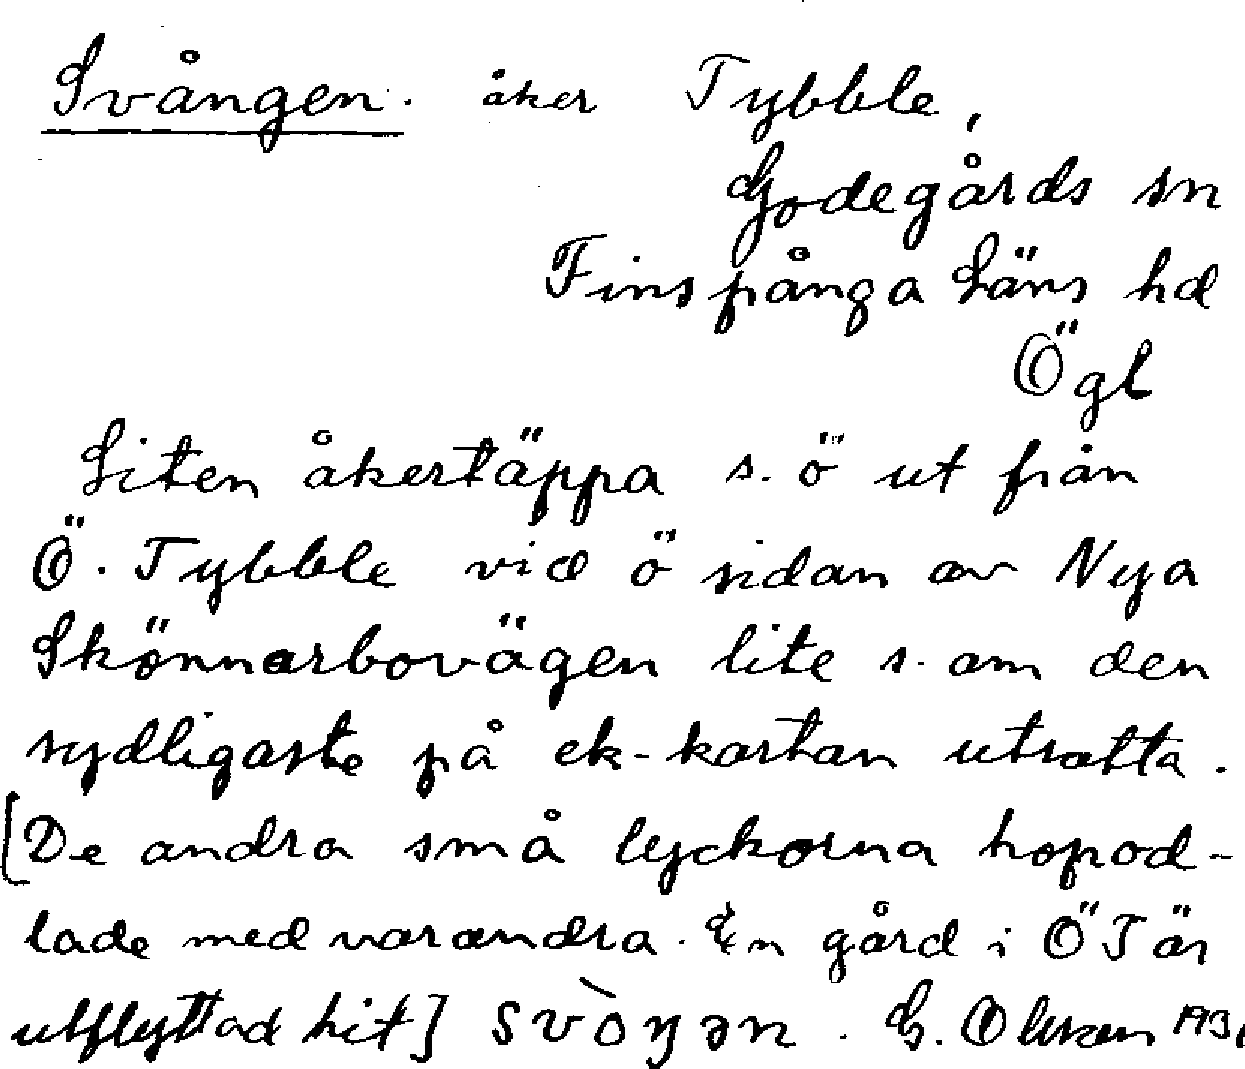 Svången. åker Tybble,
Godegårds sn
Finspånga Läns hd
Ögl
Liten åkertäppa s. ö ut från
Ö. Tybble vid ö sidan av Nya
Skönnarbovägen lite s. om den
sydligaste på ek-kartan utsatta.
[De andra små lyckorna hopod-
lade med varandra. En gård i Ö T är
utflyttad hit] svòŋən. G. Olsson